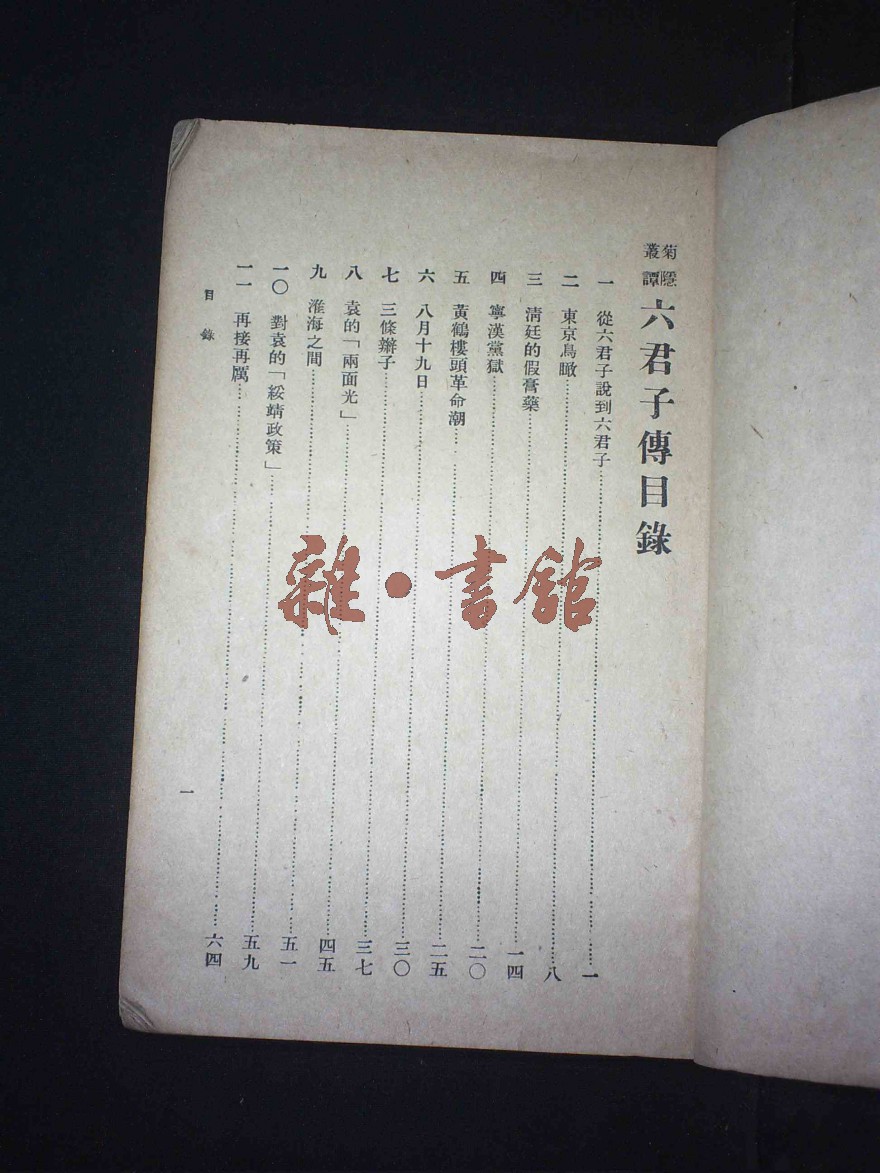 菊隱叢譚 六君子傳目錄
一 從六君子說到六君子……一
二 東京鳥瞰……八
三 清廷的假膏藥……一四
四 寧漢黨獄……二〇
五 黃鶴樓頭革命潮……二五
六 八月十九日……三〇
七 三條辮子……三七
八 袁的「兩面光」……四五
九 淮海之間……五一
一〇 對袁的「綏靖政策」……五九
一一 再接再厲……六四
目錄
一
雜·書館